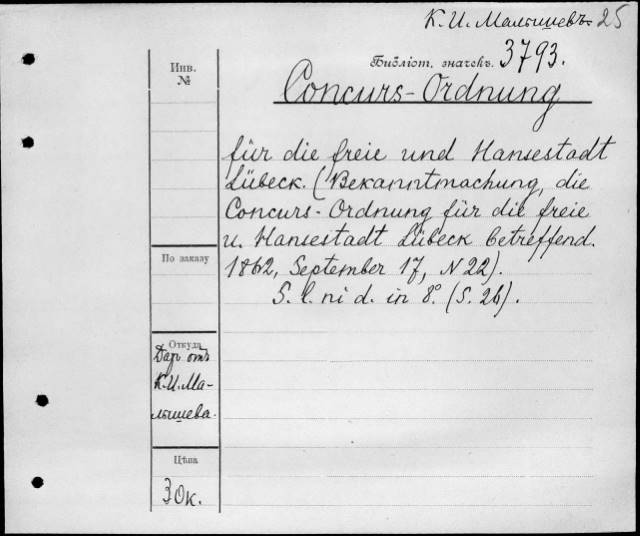 К. И. Малышевъ 25
Библіот. значекъ. 3793.
Инв.
№
Concurs-Ordnung
für die freie und Hansestadt
Lübeck. (Bekanntmachung, die
Concurs-Ordnung für die freie
u. Hansestadt Lübeck betreffend.
1862, September 17, N 22).
S. l. ni d. in 8°. (S. 26).
По заказу
Откуда
Даръ отъ
К. И. Ма-
лышева.
Цѣна
30к.